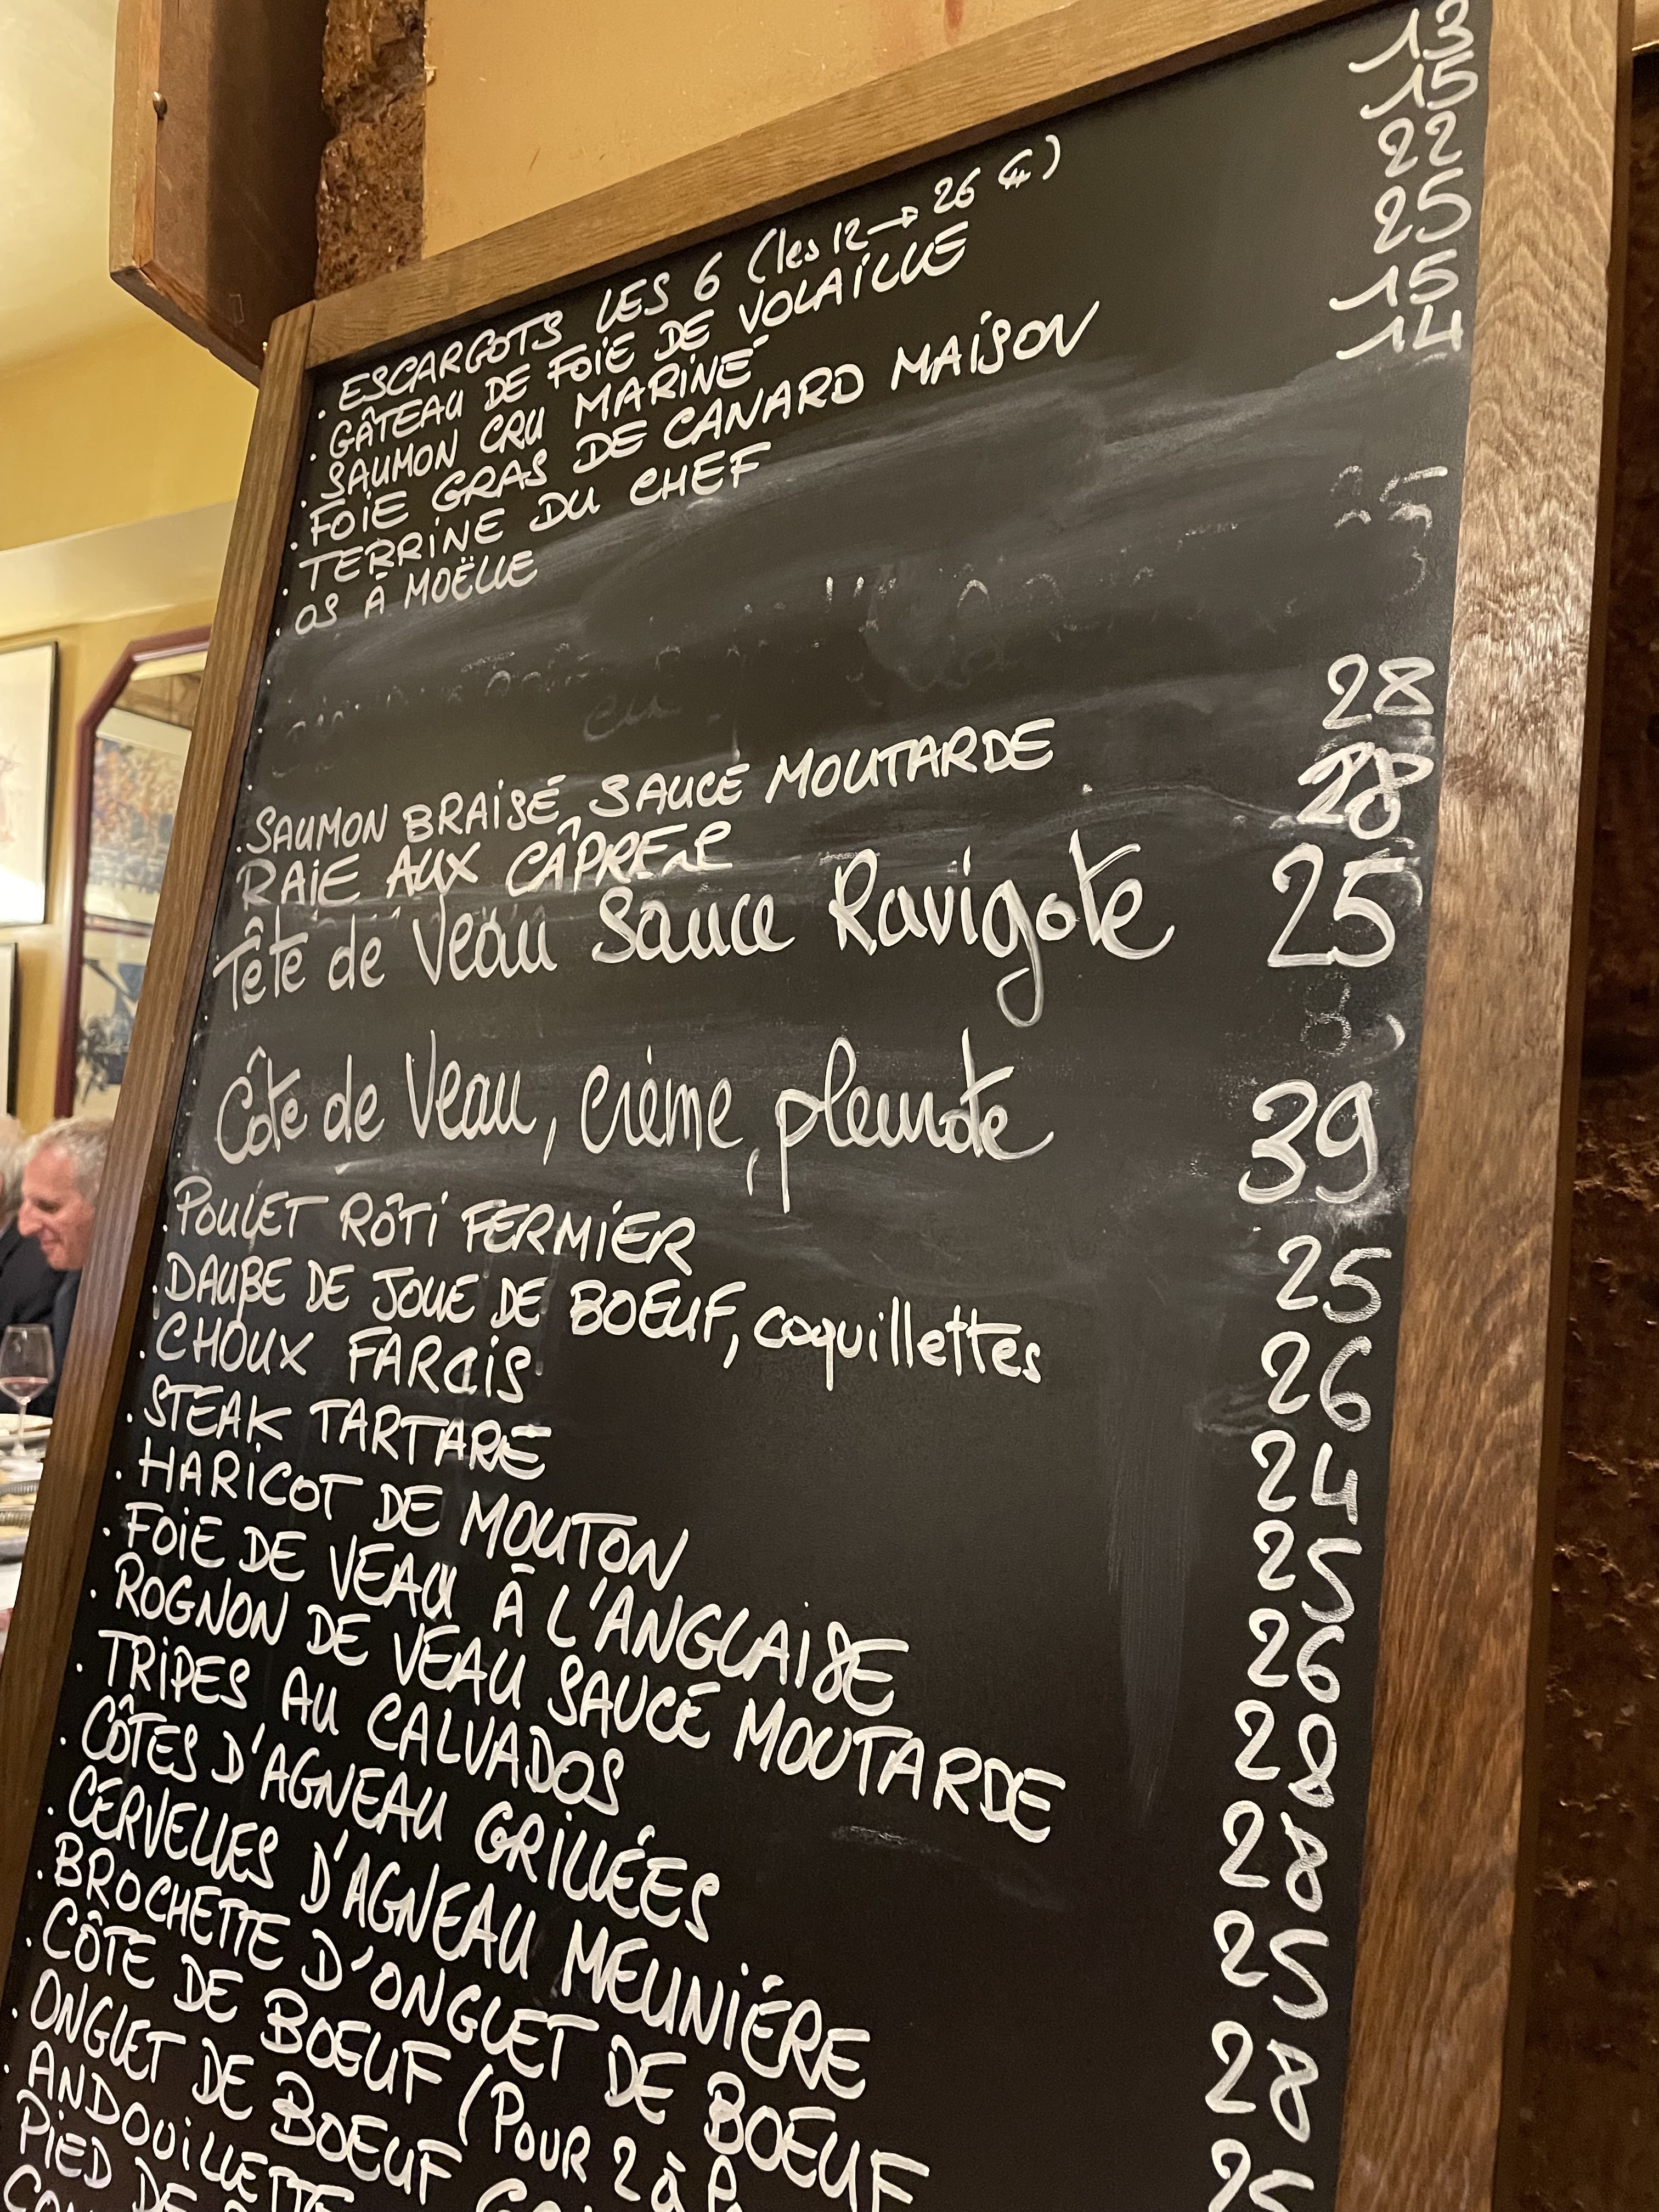 . ESCARGOTS LES 6 (les 12 → 26 €) 13
. GÂTEAU DE FOIE DE VOLAILLE 15
. SAUMON CRU MARINÉ 22
. FOIE GRAS DE CANARD MAISON 25
. TERRINE DU CHEF 15
. OS À MOËLLE 14
. SAUMON BRAISÉ, SAUCE MOUTARDE 28
RAIE AUX CÂPRES 28
Tête de Veau Sauce Ravigote 25
Côte de Veau, crème, pleurote 39
. POULET RÔTI FERMIER 25
. DAUBE DE JOUE DE BOEUF, coquillettes 26
. CHOUX FARCIS 24
. STEAK TARTARE 25
. HARICOT DE MOUTON 26
. FOIE DE VEAU À L'ANGLAISE 28
. ROGNON DE VEAU SAUCE MOUTARDE 28
. TRIPES AU CALVADOS 25
. CÔTES D'AGNEAU GRILLÉES 28
. CERVELLES D'AGNEAU MEUNIÉRE
. BROCHETTE D'ONGLET DE BOEUF
. CÔTE DE BOEUF (POUR 2 à
. ONGLET DE BOEUF
. ANDOUILLETTE
PIED DE